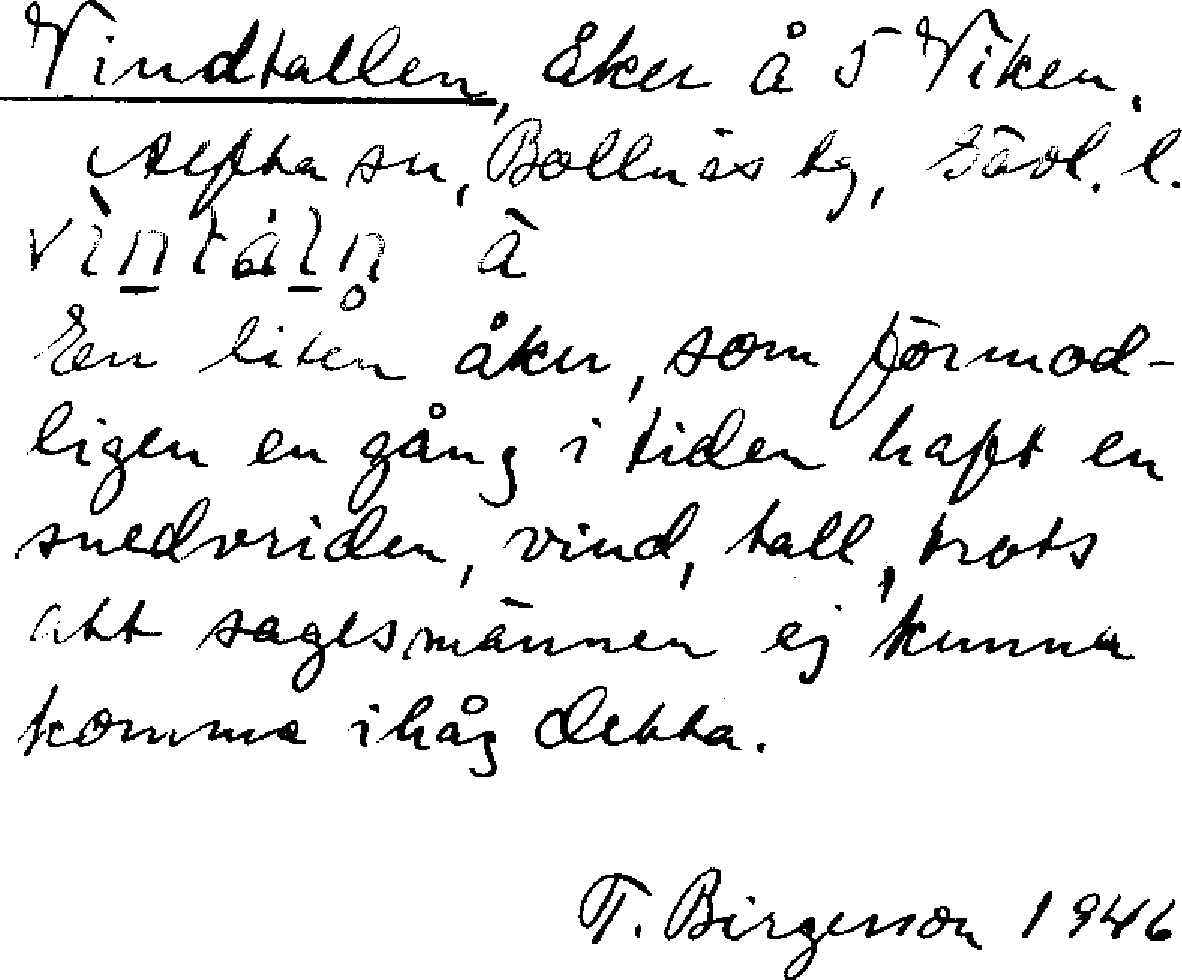 Vindtallen, åker å 5 Viken.
Alfta sn, Bollnäs tg, Gävl. l.
En liten åker, som förmod-
ligen en gång i tiden haft en
snedvriden, vind, tall, trots
att sagesmännen ej kunna
komma ihåg detta.
T. Birgerson 1946